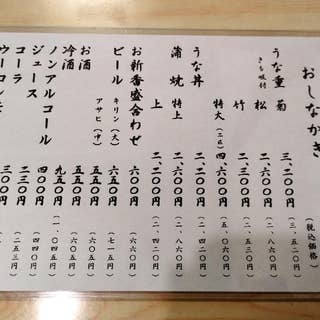 おしながき (税込価格)
うな重 菊 三、二〇〇円 (三、五二〇円)
きも吸付 松 二、六〇〇円 (二、八六〇円)
竹 二、三〇〇円 (二、五三〇円)
特大(二匹) 四、六〇〇円 (五、〇六〇円)
うな丼 二、二〇〇円 (二、四二〇円)
蒲焼 特上 二、六〇〇円 (二、八六〇円)
上 二、二〇〇円 (二、四二〇円)
お新香盛合わせ 六〇〇円 (六六〇円)
ビール キリン(大) 六五〇円 (七一五円)
アサヒ(中) 五五〇円 (六〇五円)
お酒 五五〇円 (六〇五円)
冷酒 九五〇円 (一、〇四五円)
ノンアルコール 四〇〇円 (四四〇円)
ジュース 二三〇円 (二五三円)
コーラ 三〇〇円
ウーロン